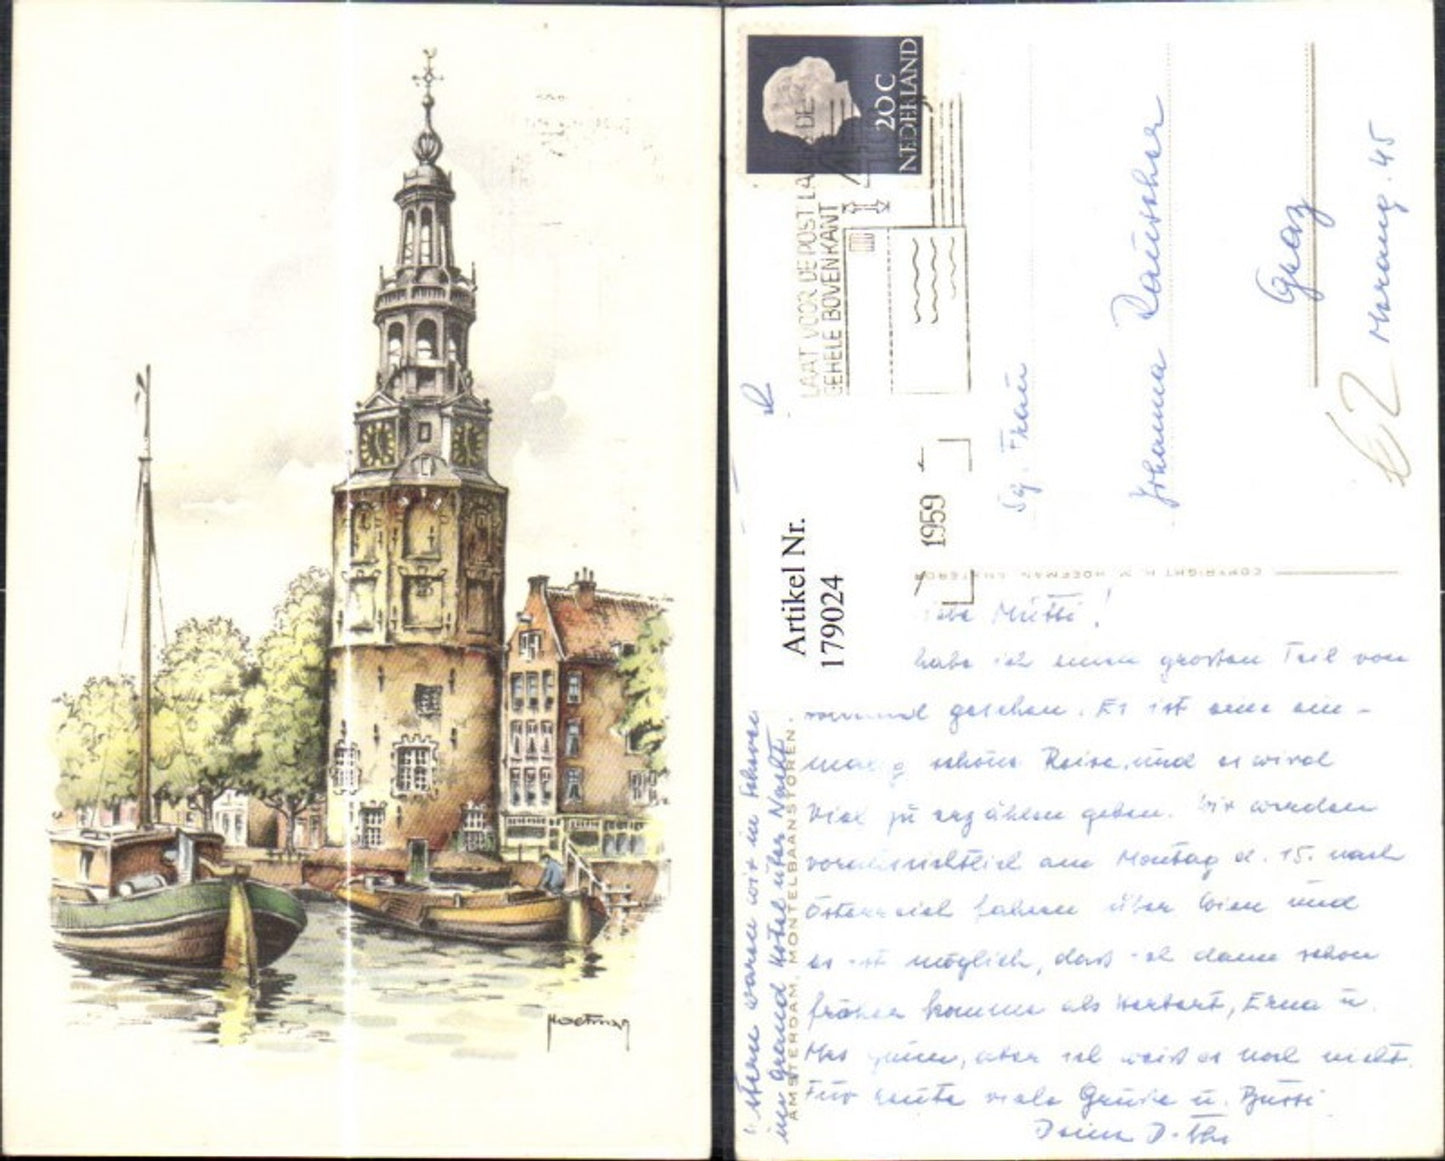 Hoefman
NEDERLAND
20 C
LAAT VOOR DE POST
GEHELE BOVENKANT
1959
Artikel Nr.
179024
Frau
Johanna Rauscher
Graz
45
COPYRIGHT HOEFMAN, AMSTERDAM
AMSTERDAM, MONTELBAANSTOREN.
Mutti!
habe ich einen grossen Teil von
gesehen. Es ist eine ein-
malig schöne Reise, und es wird
viel zu erzählen geben. Wir werden
voraussichtlich am Montag d. 15. nach
Österreich fahren über Wien und
es ist möglich, dass ich dann schon
früher komme als Herbert, Erna u.
aber ich weiss es noch nicht.
Für heute viele Grüsse u. Bussi
Deine
waren wir in
im Grand Hotel über Nacht